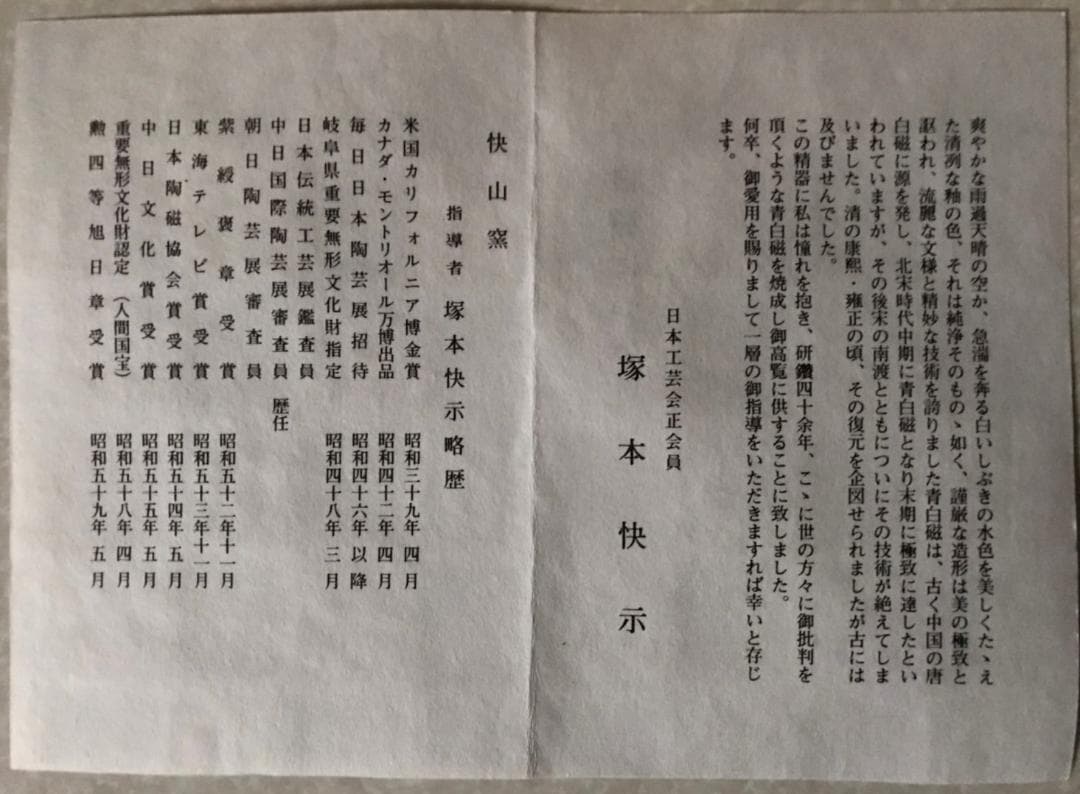 爽やかな雨過天晴の空か、急湍を奔る白いしぶきの水色を美しくたゝえ
た清冽な釉の色、それは純浄そのものゝ如く、謹厳な造形は美の極致と
謳われ、流麗な文様と精妙な技術を誇りました青白磁は、古く中国の唐
白磁に源を発し、北宋時代中期に青白磁となり末期に極致に達したとい
われていますが、その後宋の南渡とともについにその技術が絶えてしま
いました。清の康熙・雍正の頃、その復元を企図せられましたが古には
及びませんでした。
この精器に私は憧れを抱き、研鑽四十余年、こゝに世の方々に御批判を
頂くような青白磁を焼成し御高覧に供することに致しました。
何卒、御愛用を賜りまして一層の御指導をいただきますれば幸いと存じ
ます。
日本工芸会正会員
塚本快示
快山窯
指導者 塚本快示略歴
米国カリフォルニア博金賞 昭和三十九年四月
カナダ・モントリオール万博出品 昭和四十二年四月
毎日日本陶芸展招待 昭和四十六年以降
岐阜県重要無形文化財指定 昭和四十八年三月
日本伝統工芸展鑑査員
中日国際陶芸展審査員 歴任
朝日陶芸展審査員
紫綬褒章受賞 昭和五十二年十一月
東海テレビ賞受賞 昭和五十三年十一月
日本陶磁協会賞受賞 昭和五十四年五月
中日文化賞受賞 昭和五十五年五月
重要無形文化財認定（人間国宝） 昭和五十八年四月
勲四等旭日章受賞 昭和五十九年五月